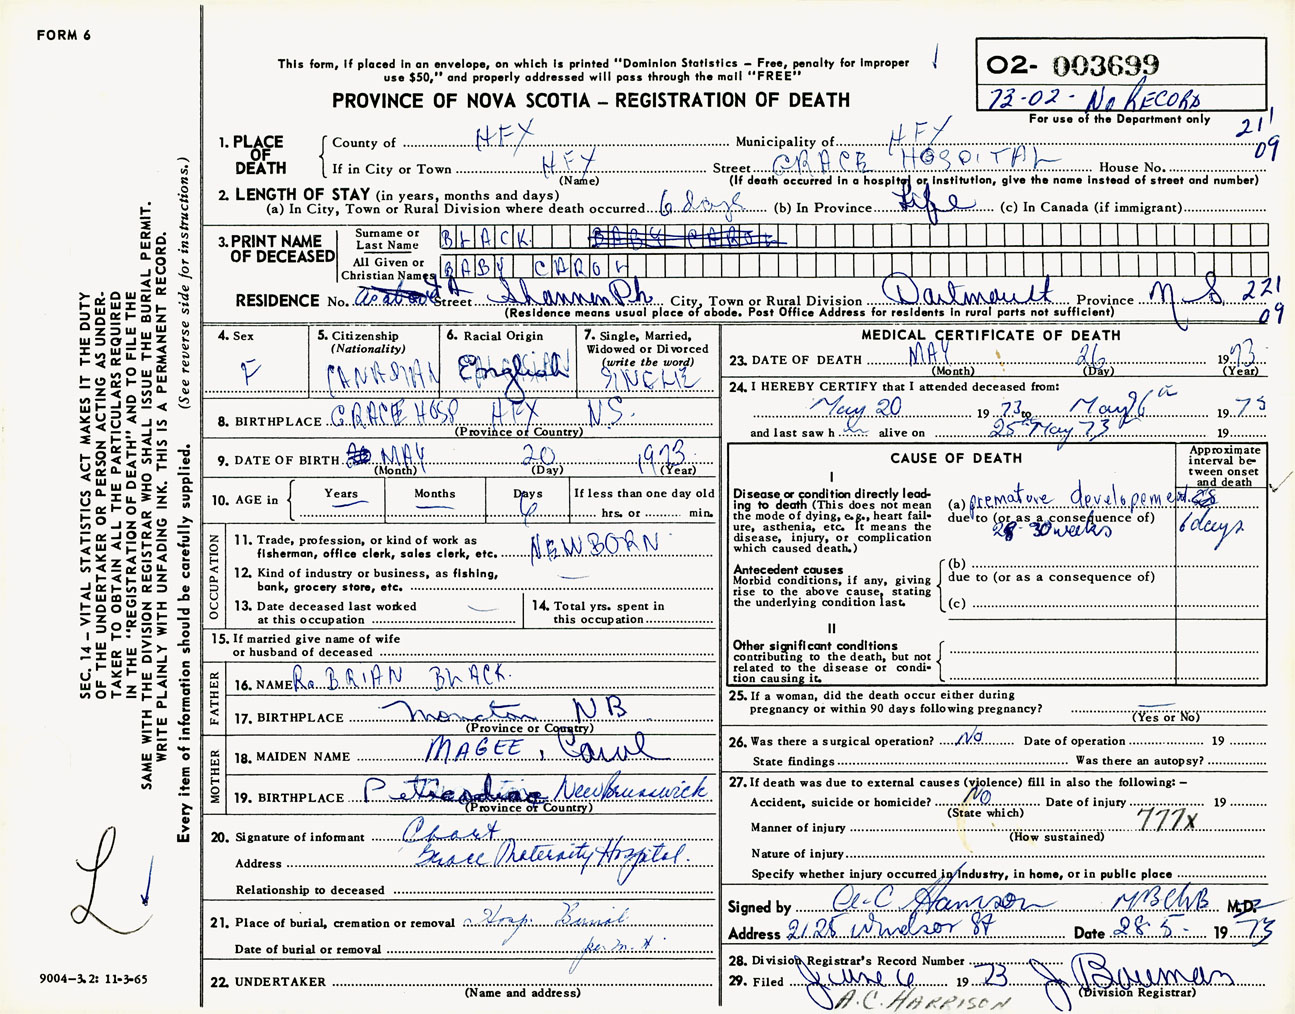 FORM 6
This form, if placed in an envelope, on which is printed "Dominion Statistics – Free, penalty for improper
use $50," and properly addressed will pass through the mail "FREE"
PROVINCE OF NOVA SCOTIA – REGISTRATION OF DEATH
02- 003699
73-02- No RECORD
For use of the Department only
211
09
1. PLACE OF DEATH
County of HFX Municipality of HFX
If in City or Town HFX Street GRACE HOSPITAL House No.
(Name) (If death occurred in a hospital or institution, give the name instead of street and number)
2. LENGTH OF STAY (in years, months and days)
(a) In City, Town or Rural Division where death occurred 6 days (b) In Province Life (c) In Canada (if immigrant)
3. PRINT NAME OF DECEASED
Surname or Last Name BLACK BABY CAROL
All Given or Christian Names BABY CAROL
RESIDENCE No. Street Shannon Pk City, Town or Rural Division Dartmouth Province N S 221
09
(Residence means usual place of abode. Post Office Address for residents in rural parts not sufficient)
4. Sex F
5. Citizenship (Nationality) CANADIAN
6. Racial Origin English
7. Single, Married, Widowed or Divorced (write the word) SINGLE
8. BIRTHPLACE GRACE HOSP HFX N.S.
(Province or Country)
9. DATE OF BIRTH MAY 20 1973
(Month) (Day) (Year)
10. AGE in Years — Months — Days 6 If less than one day old
hrs. or min.
OCCUPATION
11. Trade, profession, or kind of work as fisherman, office clerk, sales clerk, etc. NEWBORN
12. Kind of industry or business, as fishing, bank, grocery store, etc. —
13. Date deceased last worked at this occupation —
14. Total yrs. spent in this occupation
15. If married give name of wife or husband of deceased
FATHER
16. NAME BRIAN BLACK
17. BIRTHPLACE Moncton NB
(Province or Country)
MOTHER
18. MAIDEN NAME MAGEE, Carol
19. BIRTHPLACE New Brunswick
(Province or Country)
20. Signature of informant Chart
Address Grace Maternity Hospital.
Relationship to deceased
21. Place of burial, cremation or removal Hosp. Burial
Date of burial or removal
22. UNDERTAKER
(Name and address)
MEDICAL CERTIFICATE OF DEATH
23. DATE OF DEATH MAY 26 1973
(Month) (Day) (Year)
24. I HEREBY CERTIFY that I attended deceased from:
May 20 1973 to May 26th 1973
and last saw h alive on 25th May 73 19
CAUSE OF DEATH
Approximate interval between onset and death
I
Disease or condition directly leading to death (This does not mean the mode of dying, e.g., heart failure, asthenia, etc. It means the disease, injury, or complication which caused death.)
(a) premature developement
due to (or as a consequence of)
28-30 weeks
6 days
Antecedent causes
Morbid conditions, if any, giving rise to the above cause, stating the underlying condition last.
(b)
due to (or as a consequence of)
(c)
II
Other significant conditions
contributing to the death, but not related to the disease or condition causing it.
25. If a woman, did the death occur either during pregnancy or within 90 days following pregnancy? —
(Yes or No)
26. Was there a surgical operation? No Date of operation 19
State findings Was there an autopsy?
27. If death was due to external causes (violence) fill in also the following: –
Accident, suicide or homicide? No Date of injury 19
(State which)
Manner of injury 777x
(How sustained)
Nature of injury
Specify whether injury occurred in industry, in home, or in public place
Signed by A.C Harrison MBChB M.D.
Address 2125 Windsor St Date 28-5- 1973
28. Division Registrar's Record Number
29. Filed June 6 1973 J Bowman
(Division Registrar)
A.C. HARRISON
SEC. 14 – VITAL STATISTICS ACT MAKES IT THE DUTY
OF THE UNDERTAKER OR PERSON ACTING AS UNDER-
TAKER TO OBTAIN ALL THE PARTICULARS REQUIRED
IN THE "REGISTRATION OF DEATH" AND TO FILE THE
SAME WITH THE DIVISION REGISTRAR WHO SHALL ISSUE THE BURIAL PERMIT.
WRITE PLAINLY WITH UNFADING INK. THIS IS A PERMANENT RECORD.
Every item of information should be carefully supplied. (See reverse side for instructions.)
L
9004-3.2: 11-3-65